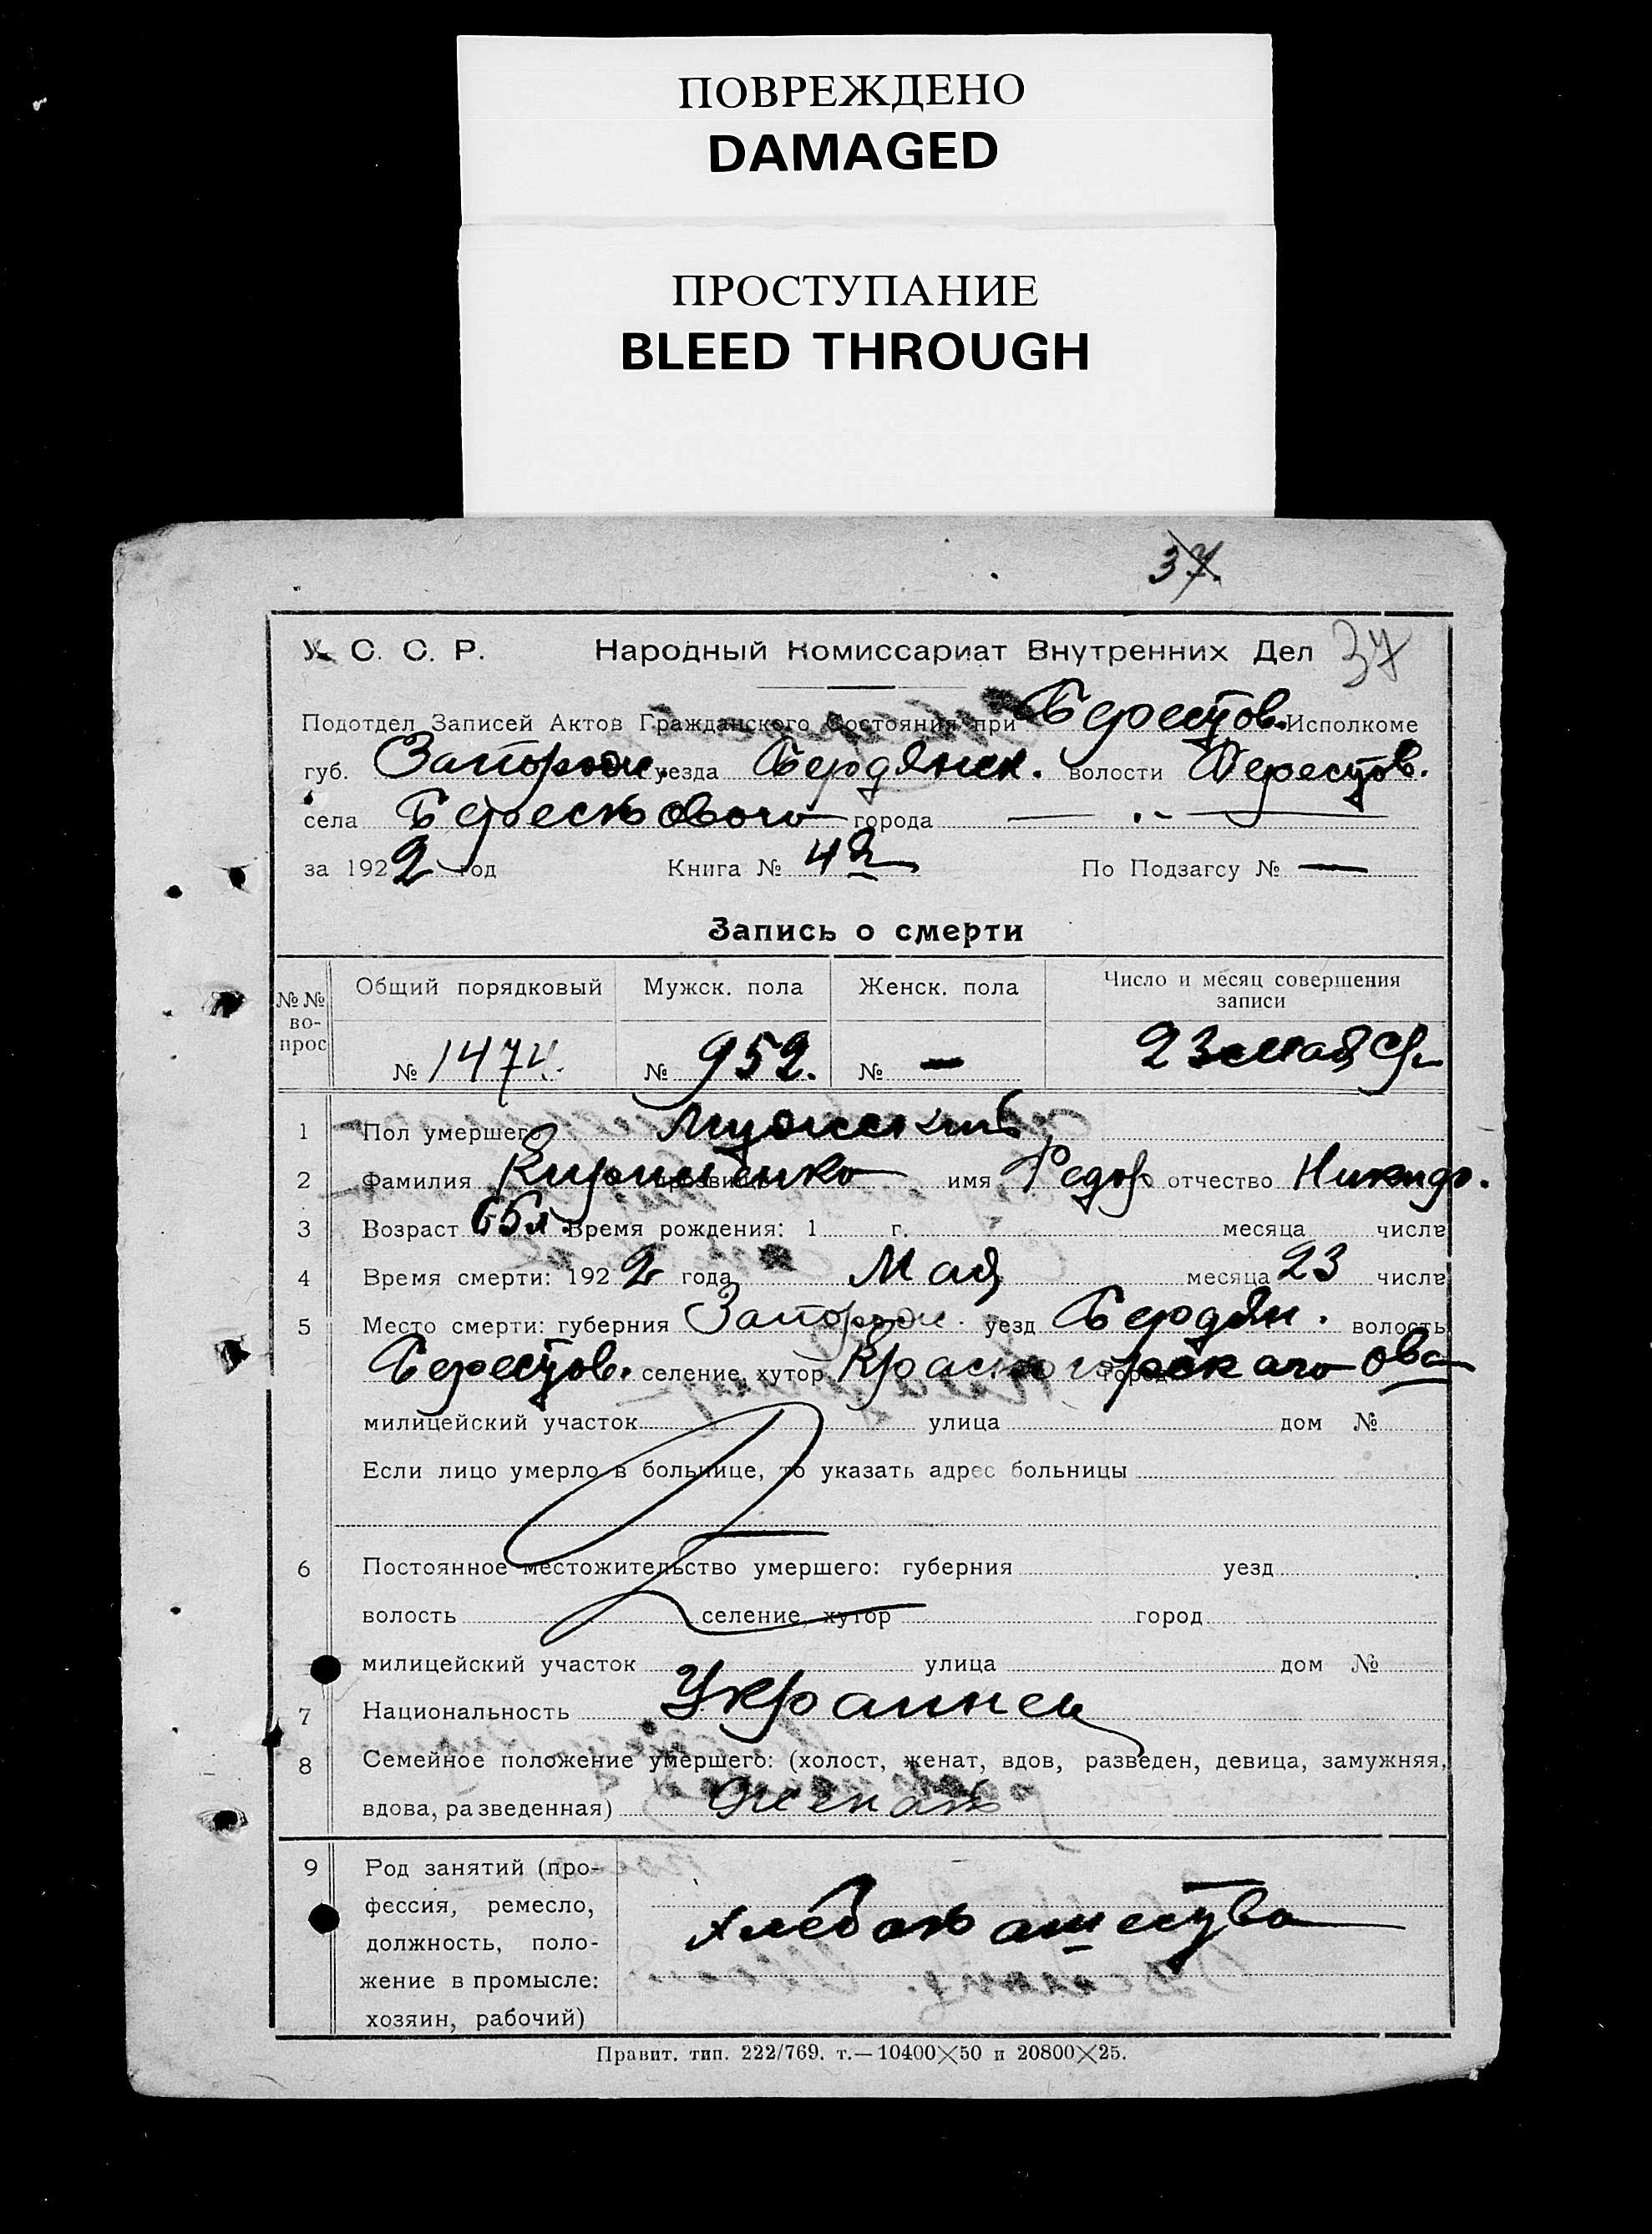 ПОВРЕЖДЕНО
DAMAGED
ПРОСТУПАНИЕ
BLEED THROUGH
37.
У. С. С. Р. Народный Комиссариат Внутренних Дел 37
Подотдел Записей Актов Гражданского Состояния при Берестов. Исполкоме
губ. Запорож. уезда Бердянск. волости Берестов.
села Берестового города —
за 1922 год Книга № 4 По Подзагсу № —
Запись о смерти
№№ вопрос Общий порядковый Мужск. пола Женск. пола Число и месяц совершения записи
№ 1474. № 952. № — 23 мая
1 Пол умершего Мужской
2 Фамилия прозвище имя Федор отчество Никифо.
3 Возраст 65 л. Время рождения: 1 г. месяца числа
4 Время смерти: 1922 года Мая месяца 23 числа
5 Место смерти: губерния Запорож. уезд Бердян. волость
Берестов. селение, хутор город
милицейский участок улица дом №
Если лицо умерло в больнице, то указать адрес больницы
6 Постоянное местожительство умершего: губерния уезд
волость селение, хутор город
милицейский участок улица дом №
7 Национальность Украинец
8 Семейное положение умершего: (холост, женат, вдов, разведен, девица, замужняя,
вдова, разведенная) женат
9 Род занятий (про-
фессия, ремесло,
должность, поло- хлебопашество
жение в промысле:
хозяин, рабочий)
Правит. тип. 222/769. т.—10400×50 и 20800×25.